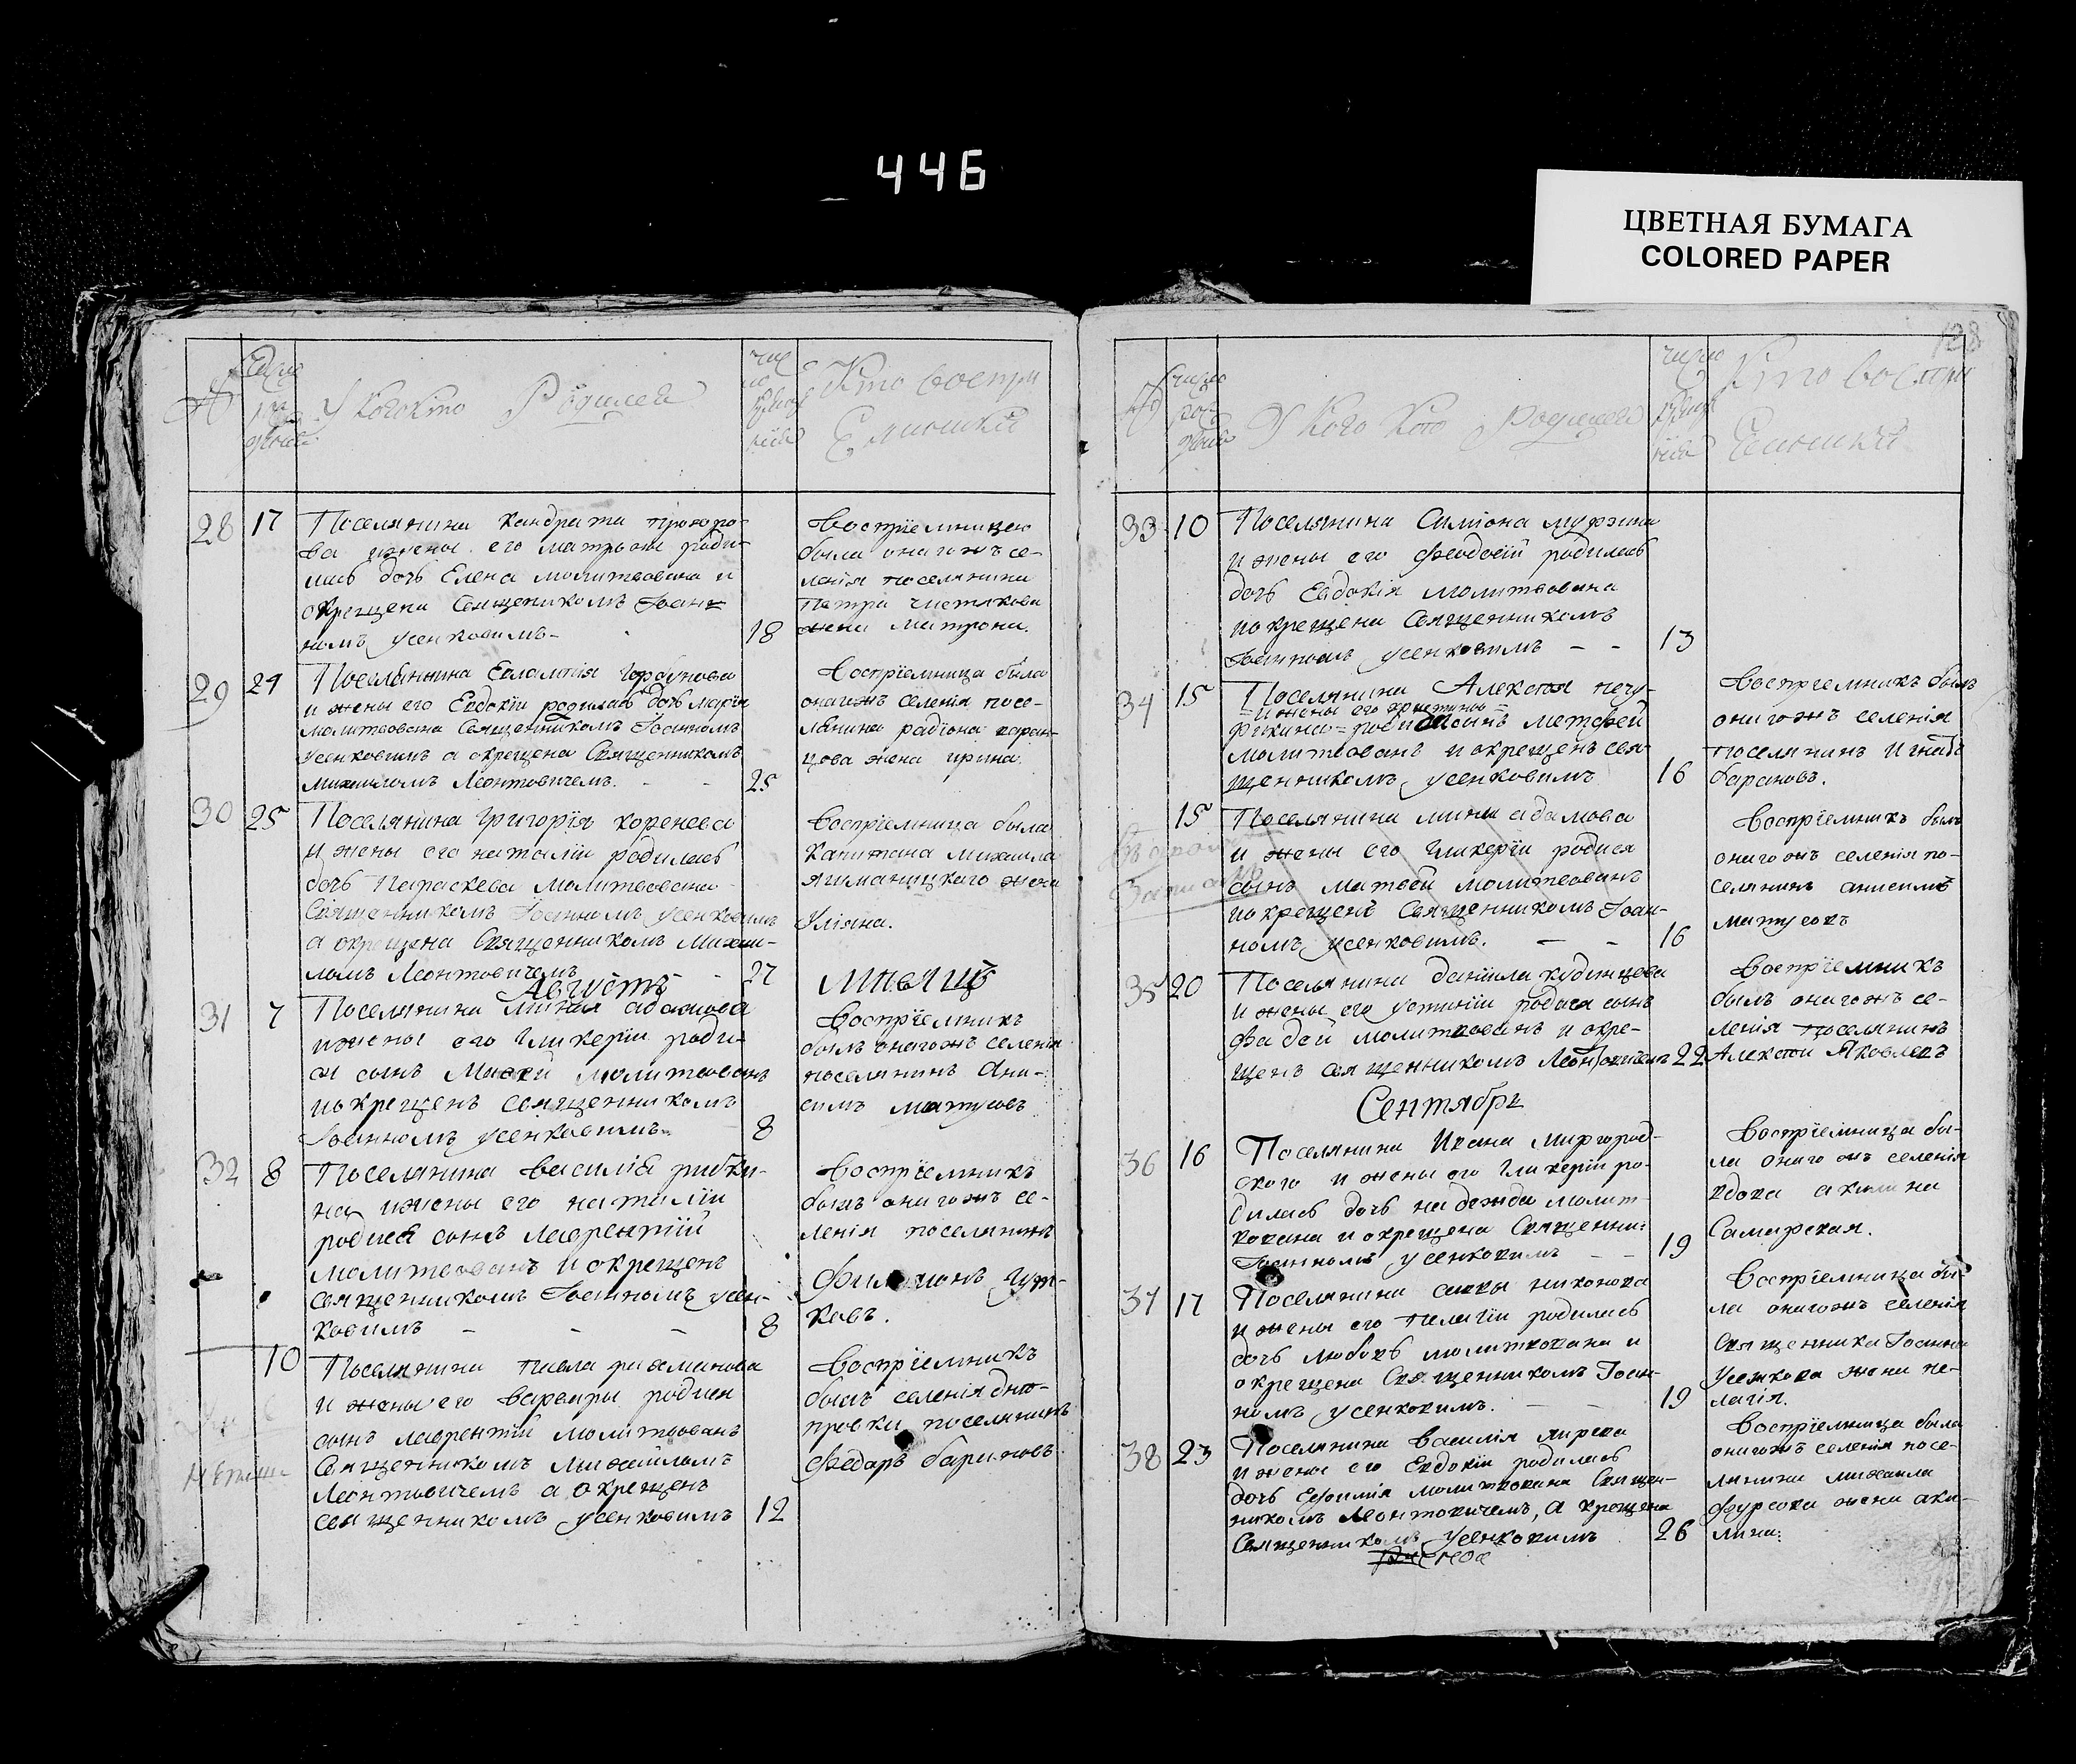 446
ЦВЕТНАЯ БУМАГА
COLORED PAPER
У кого кто Родился
Кто воспри
Емники
28 17 Поселянина Кандрата прохоро-
ва ижены его матрѣны роди-
лась дочь Елена молитвована и
окрещена Священикомъ Іоан-
номъ усенковимъ 18
Воспрїемницею
была оногожъ се-
ленія поселянина
Петра чистякова
жена Матрона.
29 24 Поселянина Евлампія Горбунова
и жены его Евдокіи родилась дочь марія
молитвована Священникомъ Іоанномъ
Усенковимъ а окрещена Священникомъ
Михаиломъ Леонтовичемъ. 25
Воспрїемница была
оногожъ селенія посе-
лянина радіона
жена ирина.
30 25 Поселянина Григорія коренева
и жены его наталіи родилась
дочь Параскева Молитвована
Священникомъ Іоанномъ усенковимъ
а окрещена Священникомъ Михаи-
ломъ Леонтовичемъ 27
Воспрїемница была
Капитана михаила
жена
Уліяна.
Августъ мѣсяцъ
31 7 Поселянина Минея адамова
ижены его Гликеріи роди-
ся сынъ молитвованъ
иокрещенъ священникомъ
Іоанномъ усенковимъ 8
Воспрїемникъ
былъ оногожъ селенія
поселянинъ Ани-
симъ матусовъ
32 8 Поселянина василія рибки-
на ижены его наталіи
родися сынъ лаврентій
молитвованъ и окрещенъ
священникомъ Іоанномъ усен-
ковимъ 8
Воспрїемникъ
былъ оногожъ се-
ленія поселянинъ
ковъ.
10 Поселянина павла рахманова
и жены его варвары родися
сынъ лаврентій молитвованъ
Священникомъ михаиломъ
Леонтовичемъ а окрещенъ
священникомъ усенковимъ 12
Воспрїемникъ
былъ селенія дню-
провки поселянинъ
Федаръ бариновъ
128
У Кого Кто Родился
Кто воспри
Емники
33 10 Поселянина Симіона мужина
и жены его Феодосіи родилась
дочь Евдокія молитвована
иокрещена Священникомъ
Іоанномъ усенковимъ 13
34 15 Поселянина Алексея печу-
= и жены его христины =
рикина = сынъ Матфей
молитвованъ иокрещенъ свя-
щенникомъ усенковимъ 16
Воспрїемникъ былъ
оногожъ селенія
поселянинъ Игнатъ
барановъ.
15 Поселянина мины адамова
и жены его Гликеріи родися
сынъ матвей молитвованъ
иокрещенъ Священникомъ Іоан-
номъ усенковимъ. 16
Воспрїемникъ былъ
оногожъ селенія по-
селянинъ анисимъ
матусовъ
35 20 Поселянина даніила кудинцова
и жены его устиніи родися сынъ
Фадей молитвованъ и окре-
щенъ священникомъ Леонтовичемъ 22
Воспрїемникъ
былъ оногожъ се-
ленія поселянинъ
Алексей Яковлевъ
Сентябрь
36 16 Поселянина Ивана миргород-
ского и жены его Гликеріи ро-
дилась дочь надежда молит-
вована иокрещена Священни:
Іоанномъ усенковимъ 19
Воспрїемница бы-
ла оногожъ селенія
вдова акилина
Самарская.
37 17 Поселянина савы никонова
и жены его пелагіи родилась
дочь любовь молитвована и
окрещена Священникомъ Іоан-
номъ усенковимъ. 19
Воспрїемница бы-
ла оногожъ селенія
священника Іоанна
Усенкова жена пе-
лагія.
38 23 Поселянина Василія
и жены его Евдокіи родилась
дочь Ефимія молитвована Священ-
никомъ Леонтовичемъ, а крещена
Священникомъ Усенковимъ 26
Воспрїемница была
оногожъ селенія посе-
лянина михаила
фурсова жена аки-
лина: